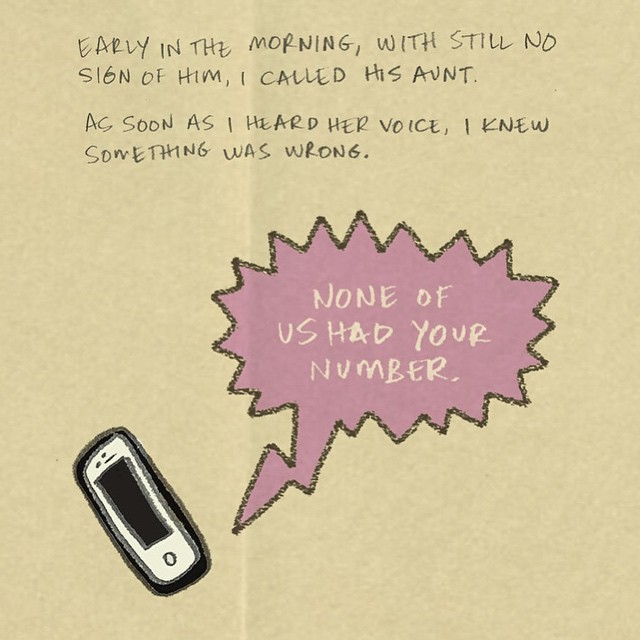 EARLY IN THE MORNING, WITH STILL NO
SIGN OF HIM, I CALLED HIS AUNT.
AS SOON AS I HEARD HER VOICE, I KNEW
SOMETHING WAS WRONG.
NONE OF
US HAD YOUR
NUMBER.